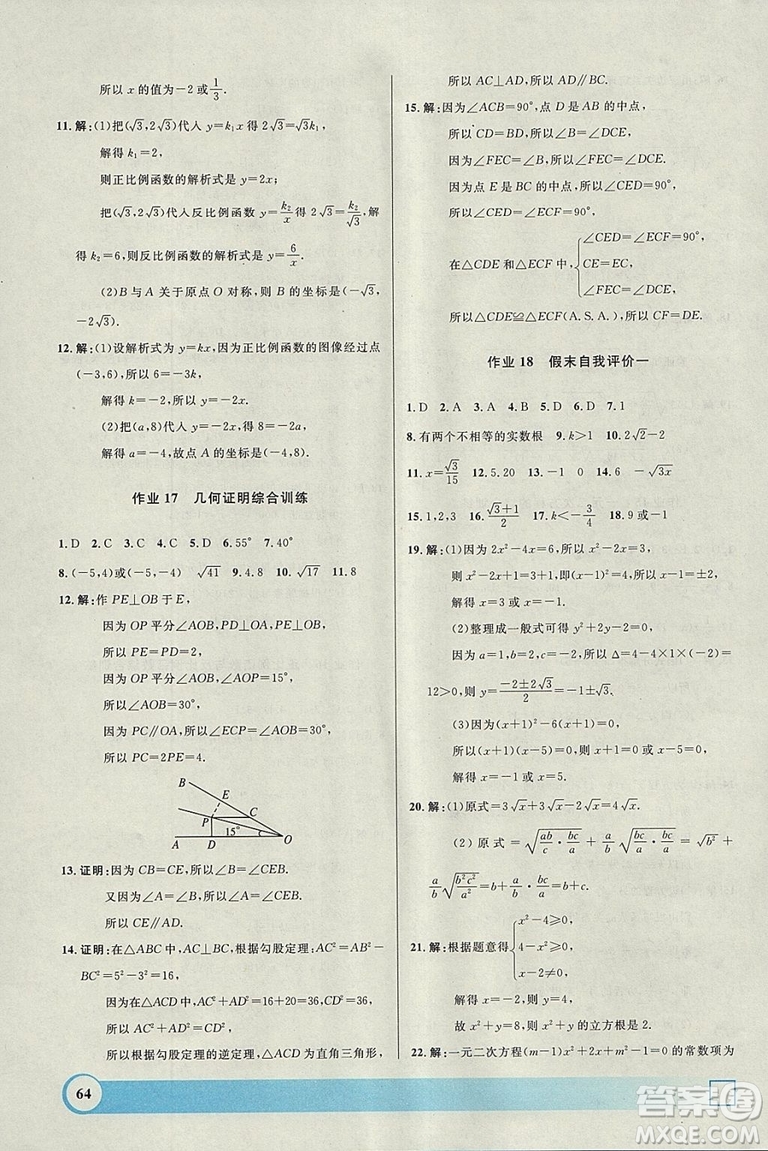 所以 x 的值为-2 或1/3.
11.解:(1)把(√3,2√3)代人 y=k₁x 得 2√3=√3k₁,
解得 k₁=2,
则正比例函数的解析式是 y=2x;
把(√3,2√3)代人反比例函数 y=k₂/x得 2√3=k₂/√3,解
得 k₂=6,则反比例函数的解析式是 y=6/x.
(2)B 与 A 关于原点 O 对称,则 B 的坐标是(-√3,
-2√3).
12.解:(1)设解析式为 y=kx,因为正比例函数的图像经过点
(-3,6),所以 6=-3k,
解得 k=-2,所以 y=-2x.
(2)把(a,8)代人 y=-2x,得 8=-2a,
解得 a=-4,故点 A 的坐标是(-4,8).
作业 17 几何证明综合训练
1.D 2.C 3.C 4.D 5.D 6.55° 7.40°
8.(-5,4)或(-5,-4) √41 9.4.8 10.√17 11.8
12.解:作 PE⊥OB 于 E,
因为 OP 平分∠AOB,PD⊥OA,PE⊥OB,
所以 PE=PD=2,
因为 OP 平分∠AOB,∠AOP=15°,
所以∠AOB=30°,
因为 PC∥OA,所以∠ECP=∠AOB=30°,
所以 PC=2PE=4.
B
E
P
C
15°
A D O
13.证明:因为 CB=CE,所以∠B=∠CEB.
又因为∠A=∠B,所以∠A=∠CEB.
所以 CE∥AD.
14.证明:在△ABC 中,AC⊥BC,根据勾股定理:AC²=AB²-
BC²=5²-3²=16,
因为在△ACD 中,AC²+AD²=16+20=36,CD²=36,
所以 AC²+AD²=CD²,
所以根据勾股定理的逆定理,△ACD 为直角三角形,
所以 AC⊥AD,所以 AD∥BC.
15.解:因为∠ACB=90°,点 D 是 AB 的中点,
所以 CD=BD,所以∠B=∠DCE,
因为∠FEC=∠B,所以∠FEC=∠DCE,
因为点 E 是 BC 的中点,所以∠CED=90°,
所以∠CED=∠ECF=90°,
在△CDE 和△ECF 中,{∠CED=∠ECF=90°,
CE=EC,
∠FEC=∠DCE,
所以△CDE≌△ECF(A.S.A.),所以 CF=DE.
作业 18 假末自我评价一
1.D 2.A 3.A 4.D 5.D 6.D 7.1
8.有两个不相等的实数根 9.k>1 10.2√2-2
11.x=√3/15 12.5.20 13.-1 0 14.6 -√3x
15.1,2,3 16.(√3+1)/2 17.k<-3/4 18.9或-1
19.解:(1)因为 2x²-4x=6,所以 x²-2x=3,
则 x²-2x+1=3+1,即(x-1)²=4,所以 x-1=±2,
解得 x=3 或 x=-1;
(2)整理成一般式可得 y²+2y-2=0,
因为 a=1,b=2,c=-2,所以 Δ=4-4×1×(-2)=
12>0,则 y=(-2±2√3)/2=-1±√3.
(3)因为(x+1)²-6(x+1)=0,
所以(x+1)(x-5)=0,则 x+1=0 或 x-5=0,
解得 x=-1 或 x=5.
20.解:(1)原式=3√x+3√x-2√x=4√x.
(2)原式=√(ab/c·bc/a)+a/b√(ab/c·bc/a·bc/a)=√b²+
a/b√(b²c²/a²)=b+a/b·bc/a=b+c.
21.解:根据题意得{x²-4≥0,
4-x²≥0,
x-2≠0,
解得 x=-2,则 y=4.
故 x²+y=8,所以 x²+y 的立方根是 2.
22.解:一元二次方程(m-1)x²+2x+m²-1=0的常数项为
64
答案圈
MXQE.COM